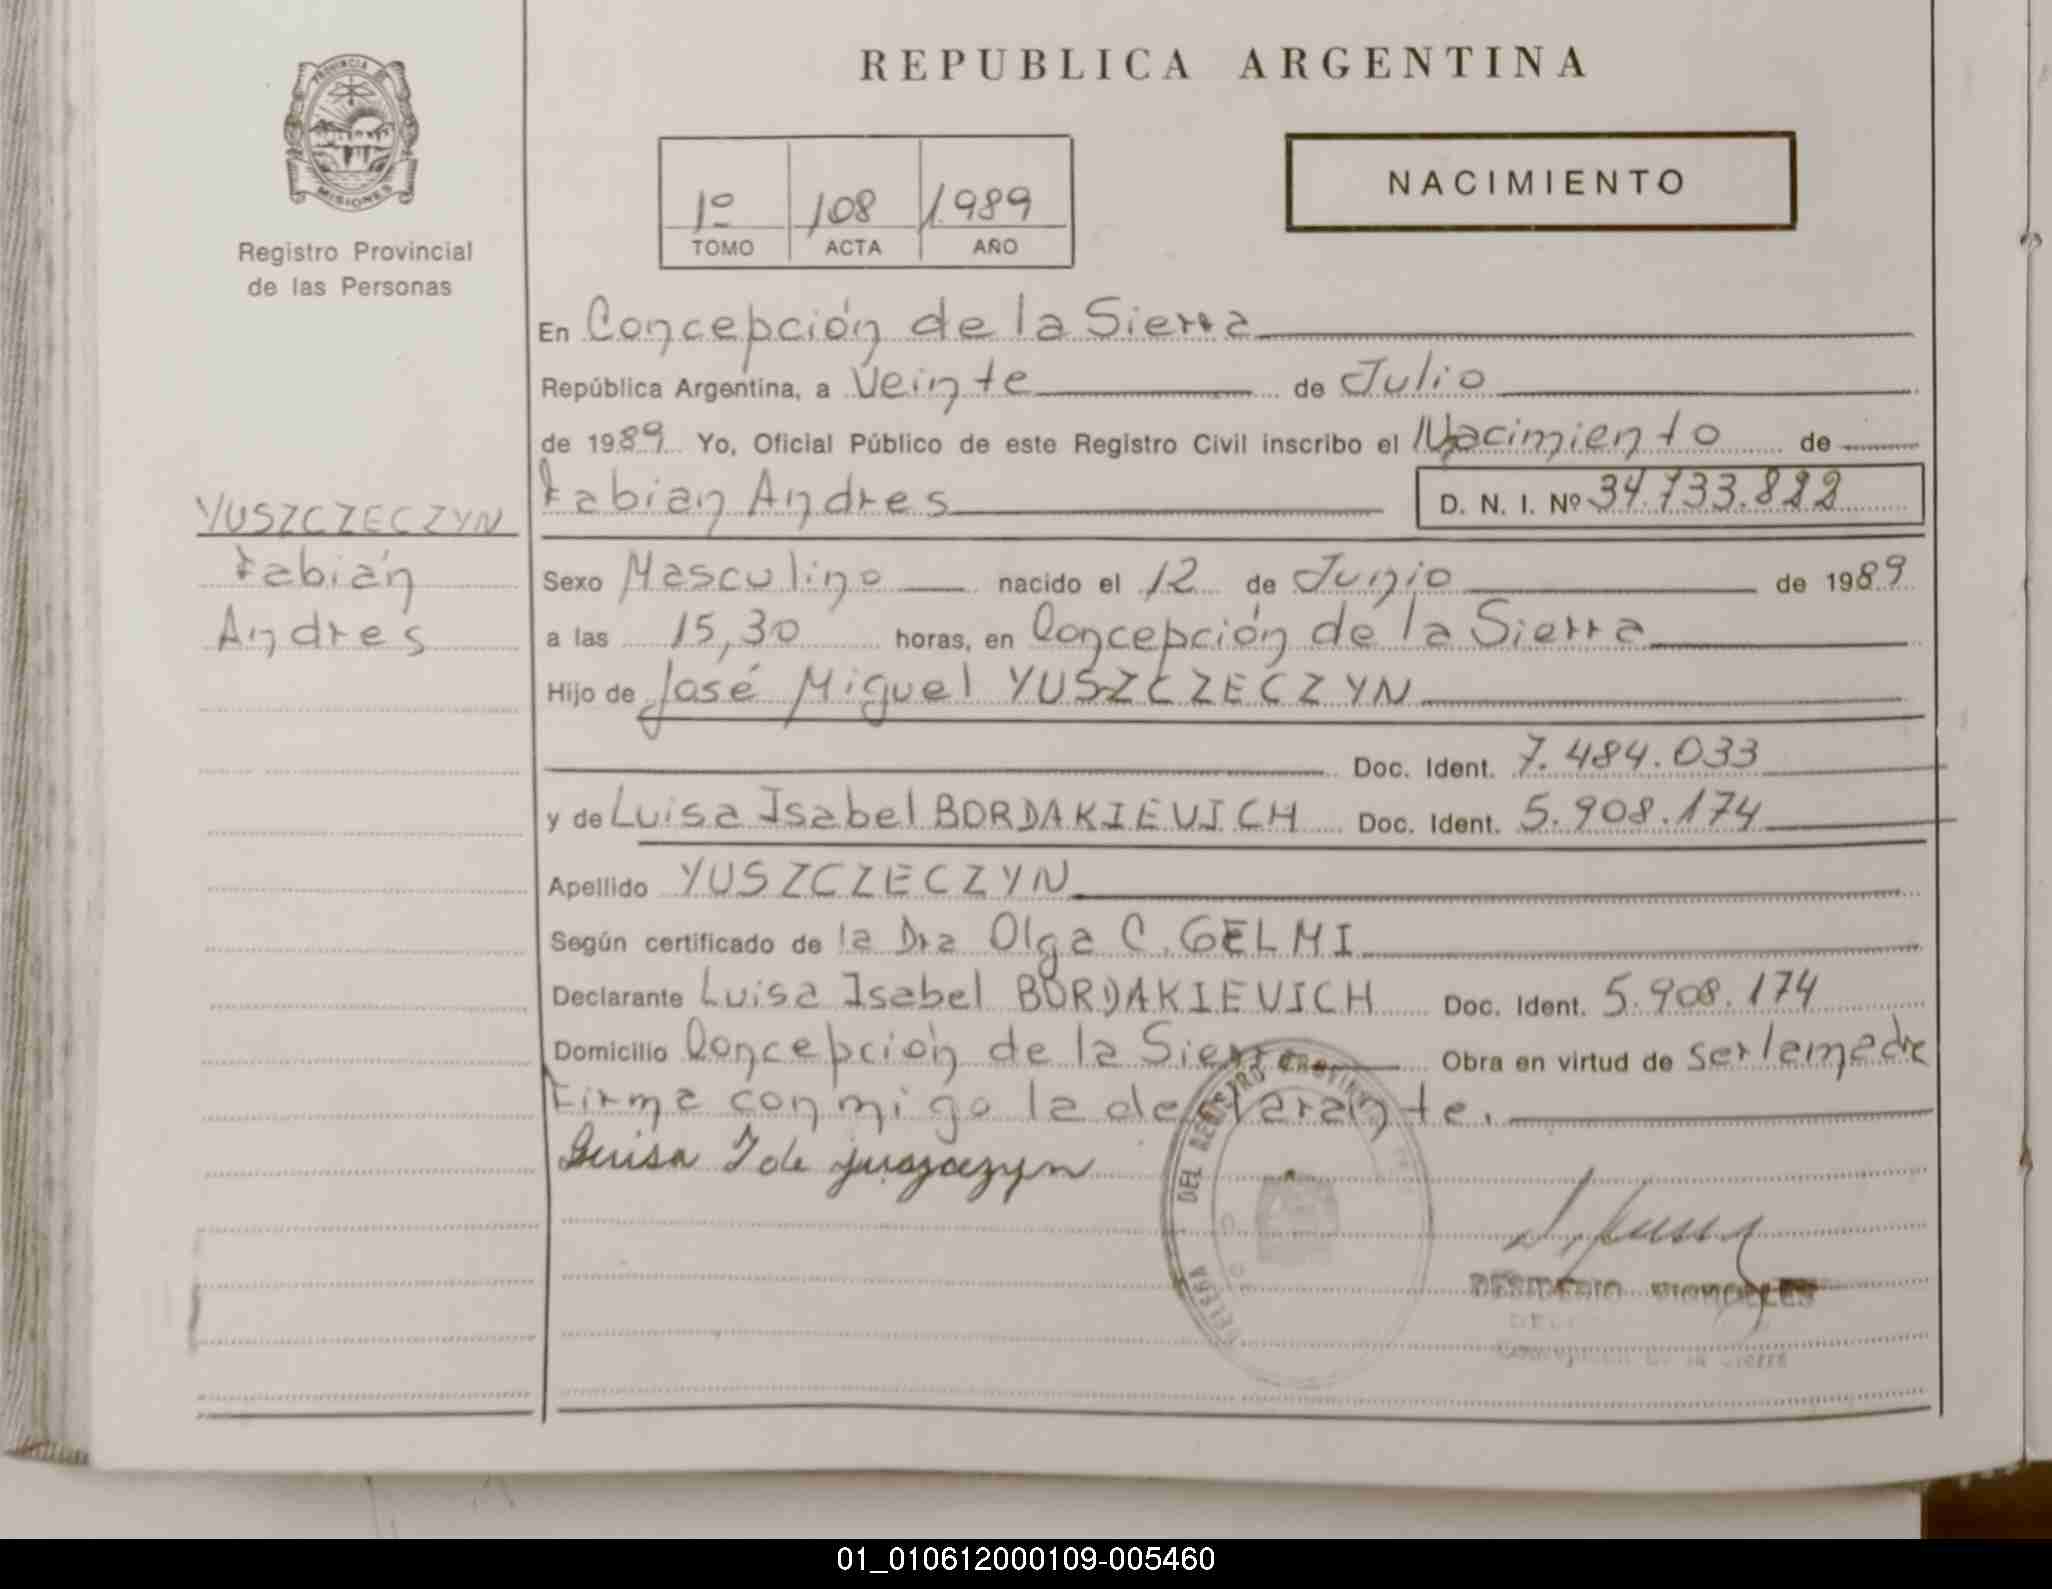 REPUBLICA ARGENTINA
PROVINCIA DE
MISIONES
Registro Provincial
de las Personas
1º 108 1989
TOMO ACTA AÑO
NACIMIENTO
En Concepción de la Sierra
República Argentina, a Veinte de Julio
de 1989 Yo, Oficial Público de este Registro Civil inscribo el Nacimiento de
Fabian Andres D. N. I. Nº 34.733.822
YUSZCZECZYN
Fabián
Andres
Sexo Masculino nacido el 12 de Junio de 1989
a las 15,30 horas, en Concepción de la Sierra
Hijo de José Miguel YUSZCZECZYN
Doc. Ident. 7.484.033
y de Luisa Isabel BORDAKIEVICH Doc. Ident. 5.908.174
Apellido YUSZCZECZYN
Según certificado de la Dra Olga C. GELMI
Declarante Luisa Isabel BORDAKIEVICH Doc. Ident. 5.908.174
Domicilio Concepción de la Sierra Obra en virtud de ser la madre
Firma conmigo la declarante.
Luisa I de
DEL REGISTRO PROVINCIAL
Concepción de la Sierra
01_010612000109-005460